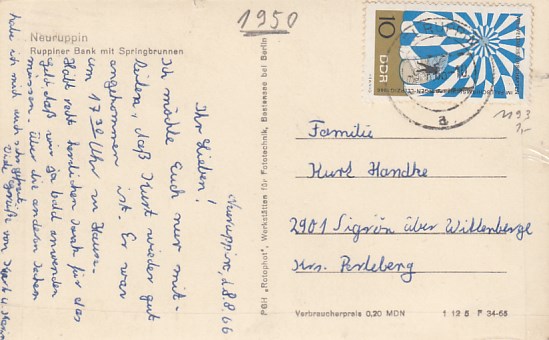 1950
Neuruppin
Ruppiner Bank mit Springbrunnen
Neuruppin, d. 8.8.66
Ihr Lieben!
Ich möchte Euch nur mit-
teilen, daß Kurt wieder gut
angekommen ist. Er war
um 17 30 Uhr zu Hause.
Habt recht herzlichen Dank für das
Geld, daß wir ja bald anwenden
müssen. Über die andern Sachen
habe ich mich auch sehr gefreut.
Viele Grüße von
PGH „Rotophot", Werkstätten für Fototechnik, Bestensee bei Berlin
10
DDR
1193
Familie
Kurt Handke
2901 Sigrön über Wittenberge
Krs. Perleberg
Verbraucherpreis 0,20 MDN
1 12 5 F 34-65